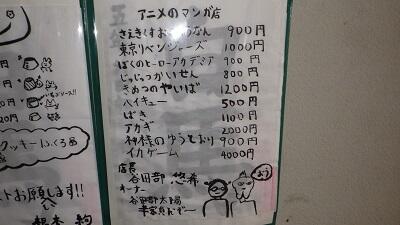 アニメのマンガ店
さえきくすおのさいなん 900円
東京リベンジャーズ 1000円
ぼくのヒーローアカデミア 900円
じゅじゅつかいせん 800円
きめつのやいば 1200円
ハイキュー 500円
ばき 1100円
アカギ 2000円
神様のゆうとおり 900円
イカゲーム 4000円
店長
谷田部 悠希
オーナー
谷田部太陽
よう
クッキーふくろ
ストお願します!!